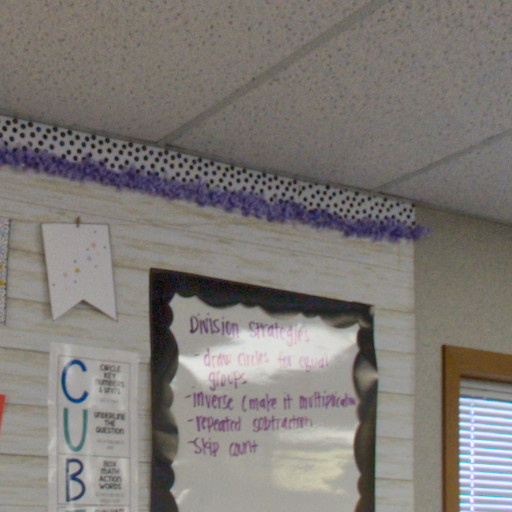 Division Strategies
- draw circles for equal
groups
- Inverse (make it multiplication
- repeated subtraction
- Skip count
C
CIRCLE
KEY
NUMBERS
& UNITS
U
UNDERLINE
THE
QUESTION
B
BOX
MATH
ACTION
WORDS
EVALUATE